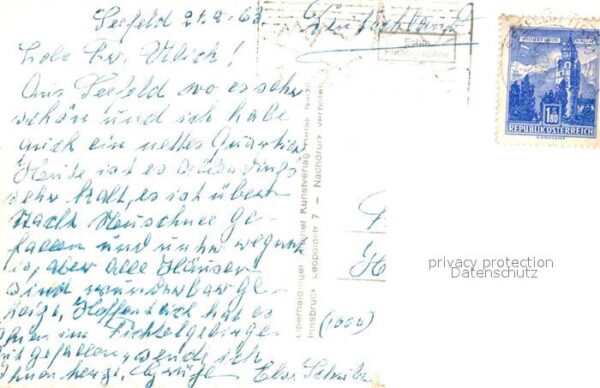 Seefeld 21.9.62
Liebe Fr. Ulrich!
Aus Seefeld wo es sehr
schön und ich habe
auch ein nettes Quartier
Heute ist es allerdings
sehr kalt, es ist über
Nacht Neuschnee ge-
fallen und
is, aber alle Häuser
sind wunderbar ge-
heizt, Hoffentlich hat es
Ihnen im Fichtelgebirge
gut gefallen, sende ich
Ihnen herzl. Grüße Elsa
Deutschland
REPUBLIK ÖSTERREICH
1.80
Kunstverlag
Innsbruck Leopoldstr 7 - Nachdruck verboten
privacy protection
Datenschutz